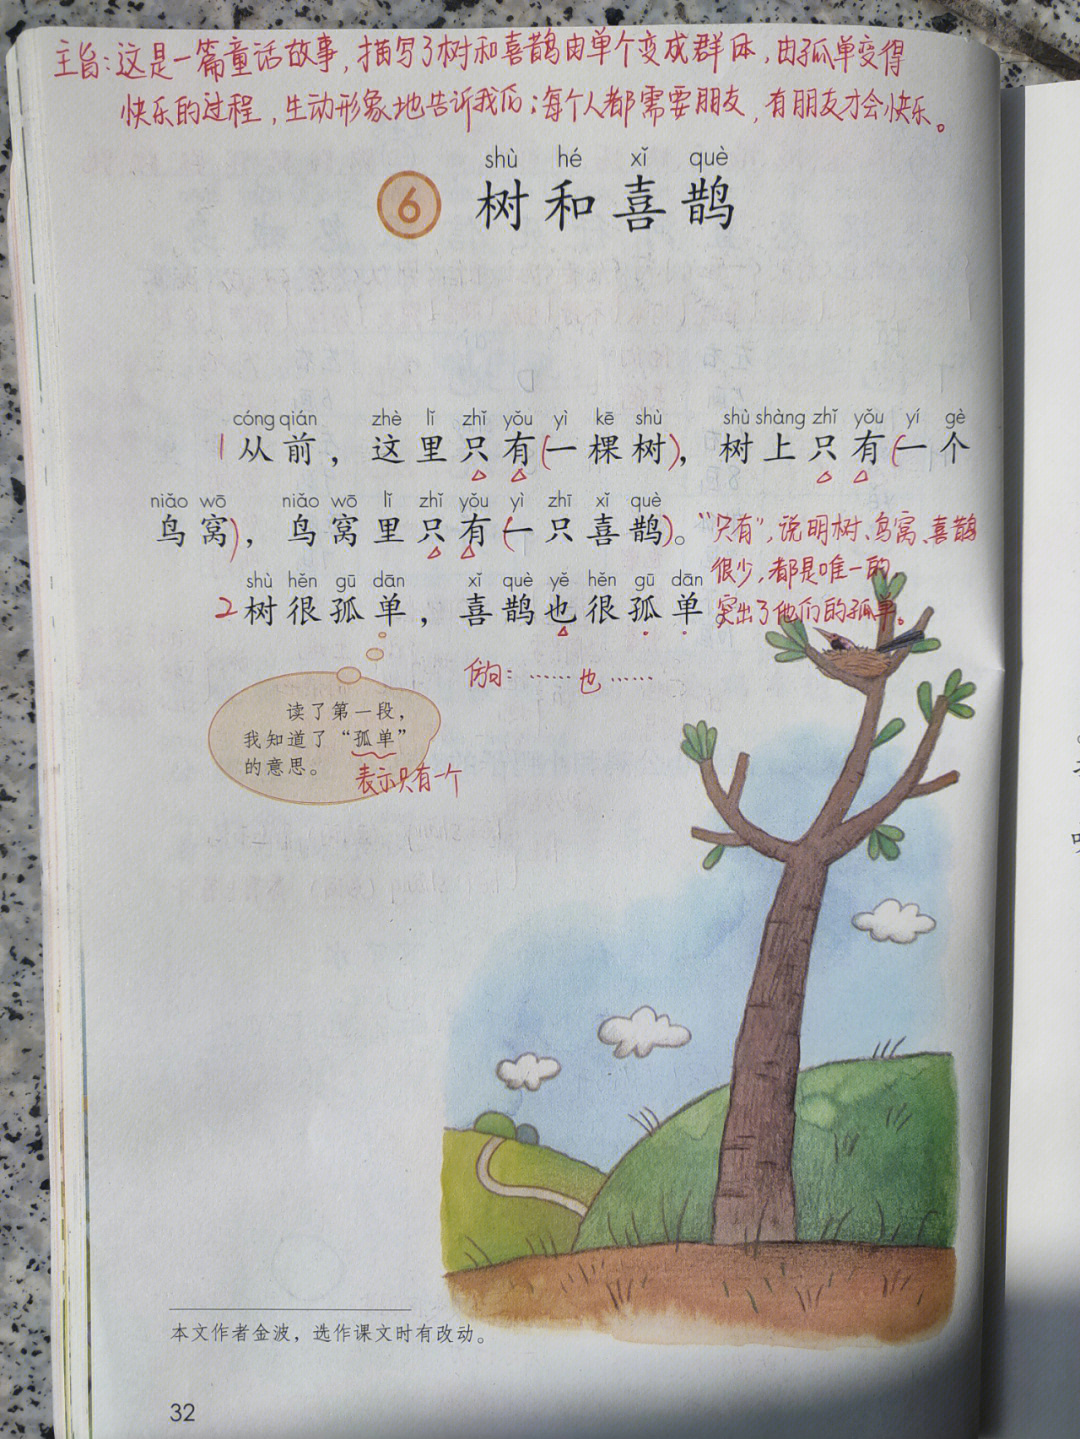 主旨:这是一篇童话故事,描写了树和喜鹊由单个变成群体,由孤单变得
快乐的过程,生动形象地告诉我们:每个人都需要朋友,有朋友才会快乐。
shù hé xǐ què
6 树和喜鹊
cóng qián zhè lǐ zhǐ yǒu yì kē shù shù shàng zhǐ yǒu yí gè
1 从前，这里只有(一棵树)，树上只有(一个
niǎo wō niǎo wō lǐ zhǐ yǒu yì zhī xǐ què
鸟窝)，鸟窝里只有(一只喜鹊)。
“只有”,说明树、鸟窝、喜鹊
很少,都是唯一的
突出了他们的孤单。
shù hěn gū dān xǐ què yě hěn gū dān
2 树很孤单，喜鹊也很孤单
仿句:……也……
读了第一段，
我知道了“孤单”
的意思。
表示只有一个
本文作者金波，选作课文时有改动。
32